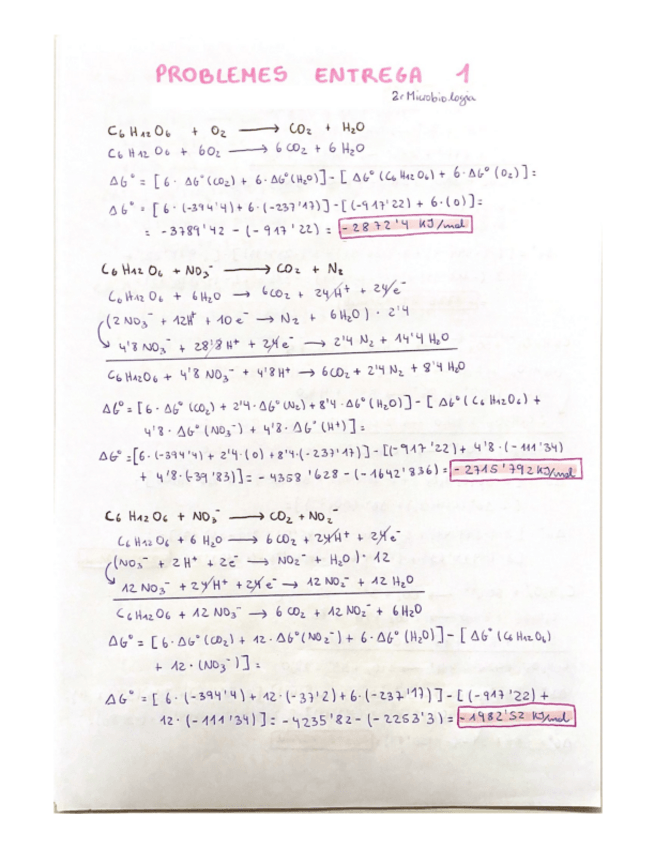 PROBLEMES ENTREGA 1
2n Microbiologia
C₆H₁₂O₆ + O₂ ⟶ CO₂ + H₂O
C₆H₁₂O₆ + 6O₂ ⟶ 6CO₂ + 6H₂O
ΔG° = [6· ΔG°(CO₂) + 6·ΔG°(H₂O)] - [ΔG°(C₆H₁₂O₆) + 6·ΔG°(O₂)] =
ΔG° = [6·(-394'4) + 6·(-237'17)] - [(-917'22) + 6·(0)] =
= -3789'42 - (-917'22) = -2872'4 KJ/mol
C₆H₁₂O₆ + NO₃⁻ ⟶ CO₂ + N₂
C₆H₁₂O₆ + 6H₂O → 6CO₂ + 24H⁺ + 24e⁻
(2NO₃⁻ + 12H⁺ + 10e⁻ → N₂ + 6H₂O) · 2'4
4'8 NO₃⁻ + 28'8H⁺ + 24e⁻ → 2'4 N₂ + 14'4 H₂O
C₆H₁₂O₆ + 4'8 NO₃⁻ + 4'8H⁺ → 6CO₂ + 2'4N₂ + 8'4 H₂O
ΔG° = [6· ΔG°(CO₂) + 2'4·ΔG°(N₂) + 8'4·ΔG°(H₂O)] - [ΔG°(C₆H₁₂O₆) +
4'8·ΔG°(NO₃⁻) + 4'8·ΔG°(H⁺)] =
ΔG° = [6·(-394'4) + 2'4·(0) + 8'4·(-237'17)] - [(-917'22) + 4'8·(-111'34)
+ 4'8·(-39'83)] = -4358'628 - (-1642'836) = -2715'792 KJ/mol
C₆H₁₂O₆ + NO₃⁻ ⟶ CO₂ + NO₂⁻
C₆H₁₂O₆ + 6H₂O → 6CO₂ + 24H⁺ + 24e⁻
(NO₃⁻ + 2H⁺ + 2e⁻ → NO₂⁻ + H₂O) · 12
12 NO₃⁻ + 24H⁺ + 24e⁻ → 12 NO₂⁻ + 12 H₂O
C₆H₁₂O₆ + 12 NO₃⁻ → 6CO₂ + 12NO₂⁻ + 6H₂O
ΔG° = [6·ΔG°(CO₂) + 12·ΔG°(NO₂⁻) + 6·ΔG°(H₂O)] - [ΔG°(C₆H₁₂O₆)
+ 12·(NO₃⁻)] =
ΔG° = [6·(-394'4) + 12·(-37'2) + 6·(-237'17)] - [(-917'22) +
12·(-111'34)] = -4235'82 - (-2253'3) = -1982'52 KJ/mol